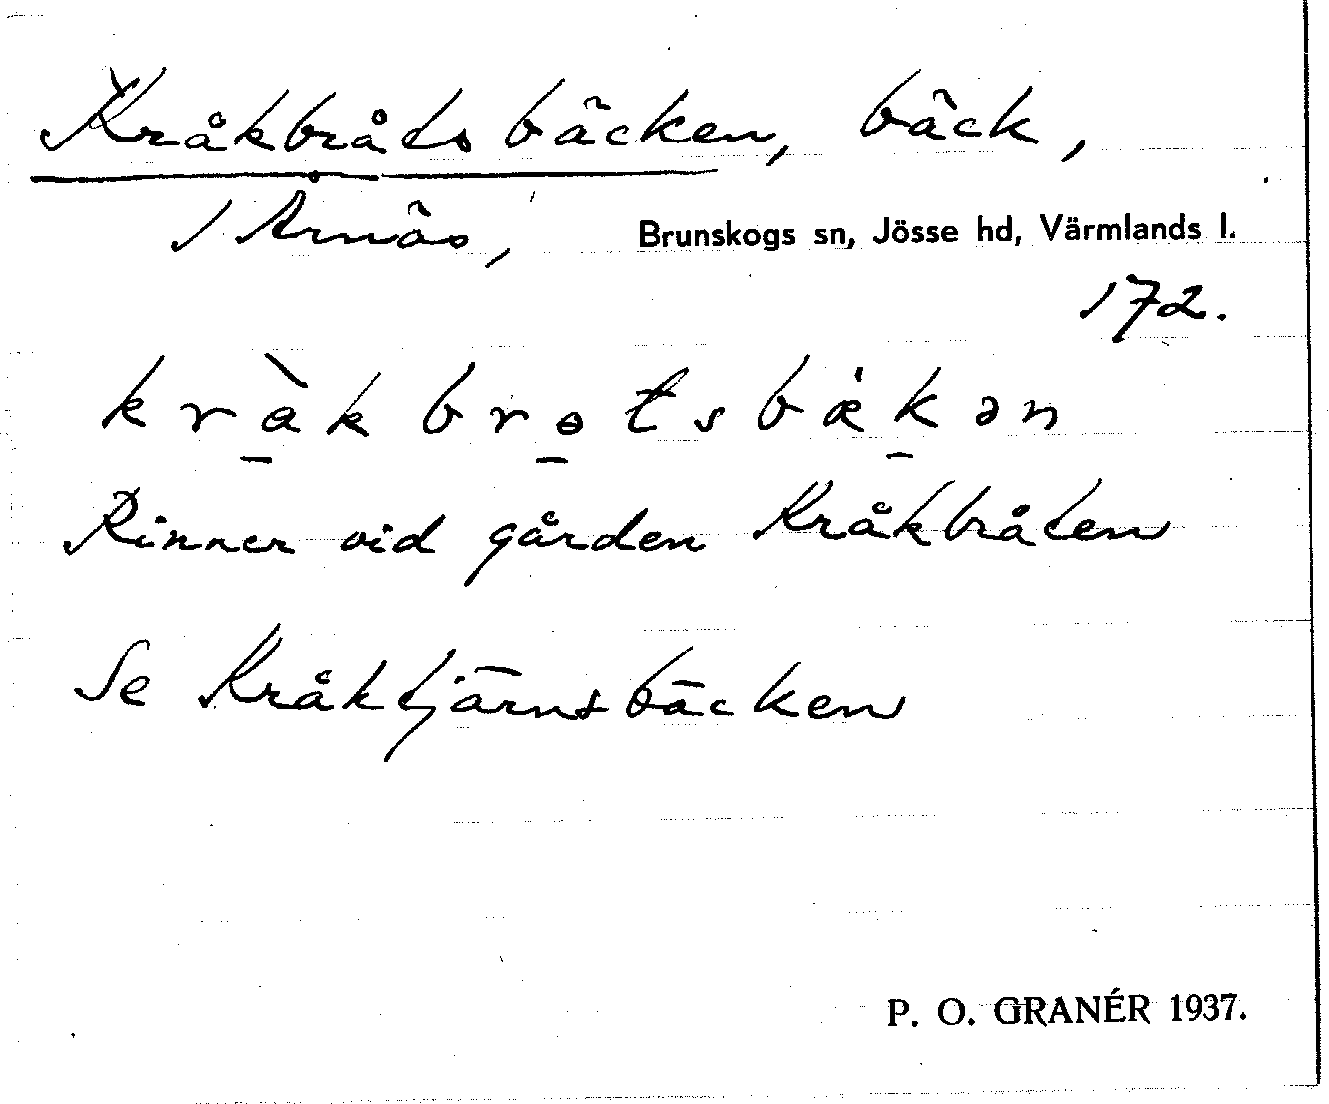 Kråkbråtsbäcken, bäck,
1 Årnäs, Brunskogs sn, Jösse hd, Värmlands l.
172.
kràkbrɵtsbækən
Rinner vid gården Kråkbråten
Se Kråktjärnsbäcken
P. O. GRANÉR 1937.